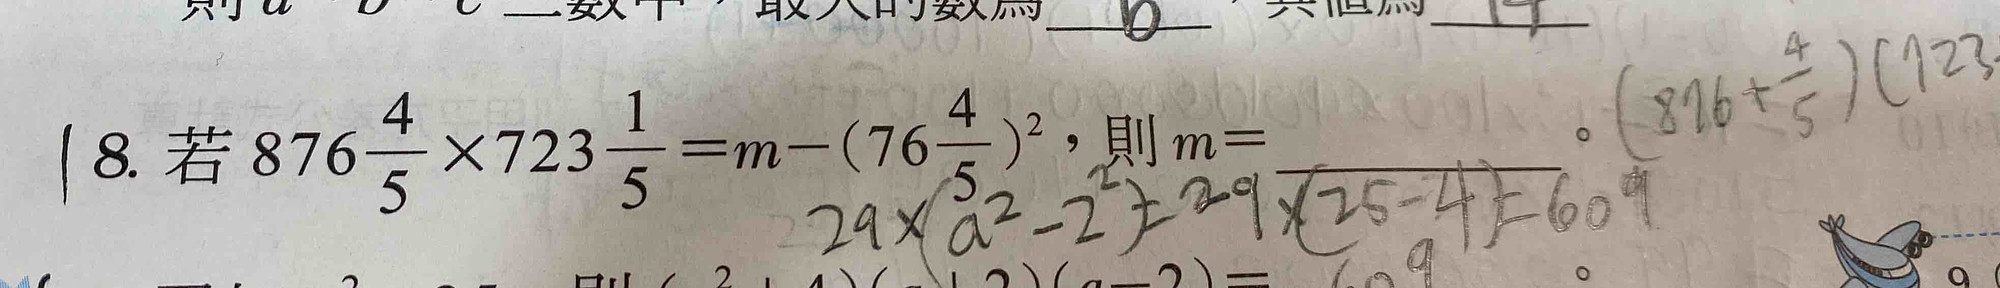 則 a、b、c 三數中，最大的數為 b ，其值為
8. 若 876 4/5 × 723 1/5 = m − (76 4/5)²，則 m = 。 (876 + 4/5) (723
29 × (a² − 2²) = 29 × (25 − 4) = 609
609 。
9